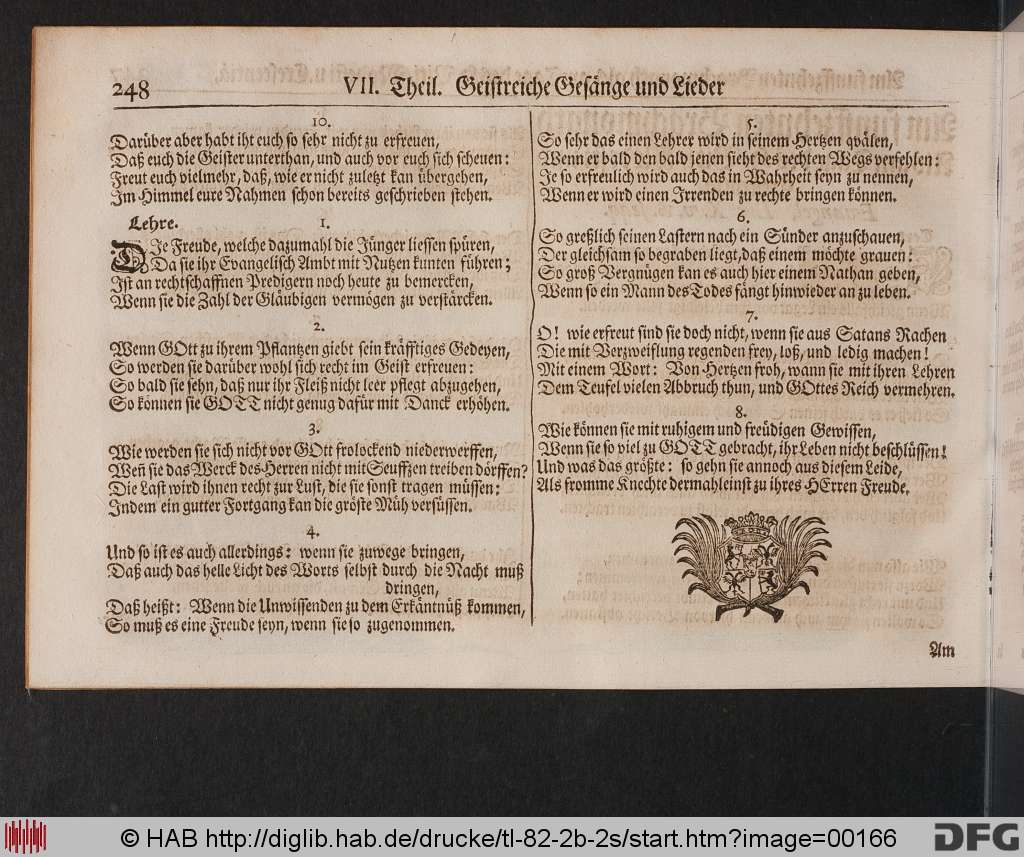 248 VII. Theil. Geistreiche Gesänge und Lieder
10.
Darüber aber habt iht euch so sehr nicht zu erfreuen,
Daß euch die Geister unterthan, und auch vor euch sich scheuen:
Freut euch vielmehr, daß, wie er nicht zuletzt kan übergehen,
Im Himmel eure Nahmen schon bereits geschrieben stehen.
Lehre. 1.
DIe Freude, welche dazumahl die Jünger liessen spüren,
Da sie ihr Evangelisch Ambt mit Nutzen kunten führen;
Ist an rechtschaffnen Predigern noch heute zu bemercken,
Wenn sie die Zahl der Gläubigen vermögen zu verstärcken.
2.
Wenn GOtt zu ihrem Pflantzen giebt sein kräfftiges Gedeyen,
So werden sie darüber wohl sich recht im Geist erfreuen:
So bald sie sehn, daß nur ihr Fleiß nicht leer pflegt abzugehen,
So können sie GOTT nicht genug dafür mit Danck erhöhen.
3.
Wie werden sie sich nicht vor GOtt frolockend niederwerffen,
Weñ sie das Werck des Herren nicht mit Seuffzen treiben dörffen?
Die Last wird ihnen recht zur Lust, die sie sonst tragen müssen:
Indem ein gutter Fortgang kan die gröste Müh versüssen.
4.
Und so ist es auch allerdings: wenn sie zuwege bringen,
Daß auch das helle Licht des Worts selbst durch die Nacht muß
dringen,
Daß heißt: Wenn die Unwissenden zu dem Erkäntnüß kommen,
So muß es eine Freude seyn, wenn sie so zugenommen.
5.
So sehr das einen Lehrer wird in seinem Hertzen qvälen,
Wenn er bald den bald jenen sieht des rechten Wegs verfehlen:
Je so erfreulich wird auch das in Wahrheit seyn zu nennen,
Wenn er wird einen Irrenden zu rechte bringen können.
6.
So greßlich seinen Lastern nach ein Sünder anzuschauen,
Der gleichsam so begraben liegt, daß einem möchte grauen:
So groß Vergnügen kan es auch hier einem Nathan geben,
Wenn so ein Mann des Todes fängt hinwieder an zu leben.
7.
O! wie erfreut sind sie doch nicht, wenn sie aus Satans Rachen
Die mit Verzweiflung regenden frey, loß, und ledig machen!
Mit einem Wort: Von Hertzen froh, wann sie mit ihren Lehren
Dem Teufel vielen Abbruch thun, und GOttes Reich vermehren.
8.
Wie können sie mit ruhigem und freüdigen Gewissen,
Wenn sie so viel zu GOTT gebracht, ihr Leben nicht beschlüssen!
Und was das größte: so gehn sie annoch aus diesem Leide,
Als fromme Knechte dermahleinst zu ihres HErren Freude.
Am
© HAB http://diglib.hab.de/drucke/tl-82-2b-2s/start.htm?image=00166
DFG